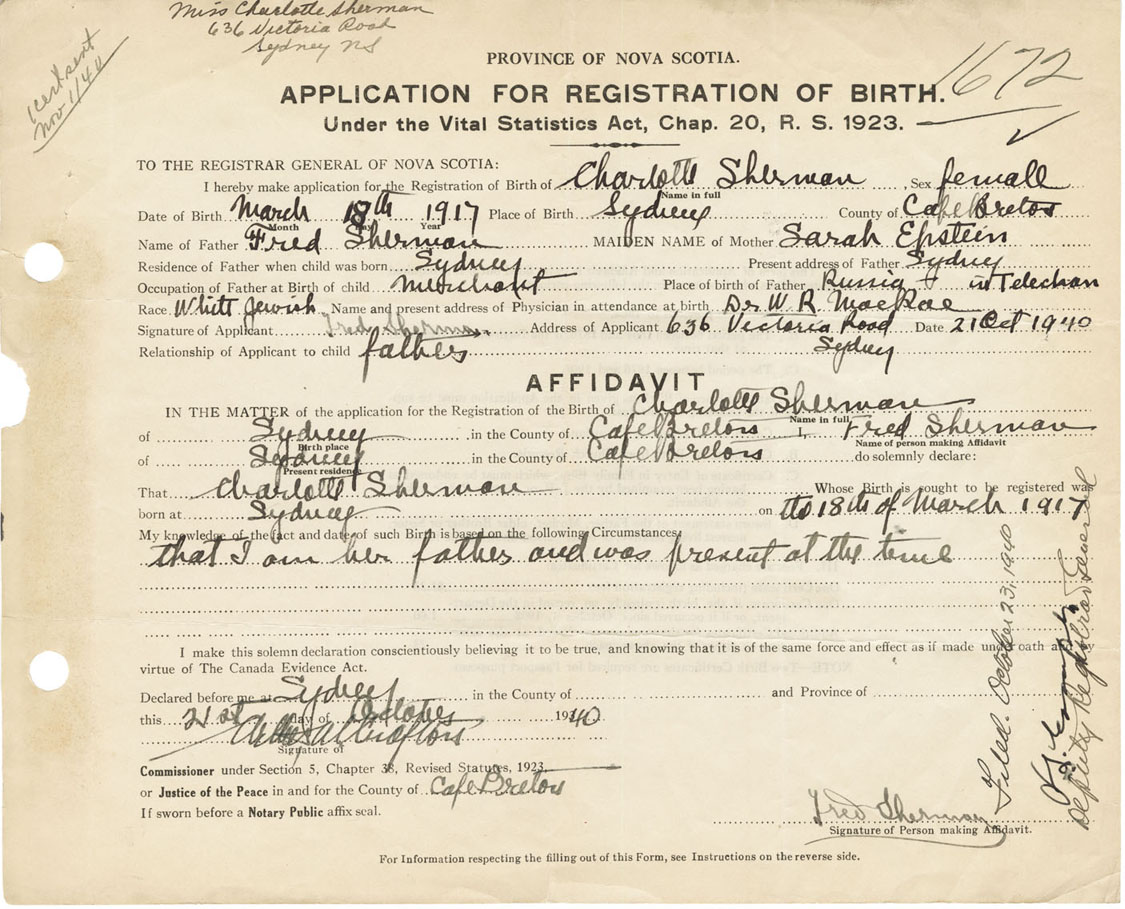 Miss Charlotte Sherman
636 Victoria Road
Sydney NS
1 cert sent
Nov 1/40
PROVINCE OF NOVA SCOTIA.
1672
APPLICATION FOR REGISTRATION OF BIRTH.
Under the Vital Statistics Act, Chap. 20, R. S. 1923.
TO THE REGISTRAR GENERAL OF NOVA SCOTIA:
I hereby make application for the Registration of Birth of Charlotte Sherman, Sex female
Name in full
Date of Birth March 18th 1917 Place of Birth Sydney County of Cape Breton
Month Day Year
Name of Father Fred Sherman MAIDEN NAME of Mother Sarah Epstein
Residence of Father when child was born Sydney Present address of Father Sydney
Occupation of Father at Birth of child merchant Place of birth of Father Russia in Telechan
Race White Jewish Name and present address of Physician in attendance at birth Dr W. R. MacRae
Signature of Applicant Fred Sherman Address of Applicant 636 Victoria Road Date 21 Oct 1940
Sydney
Relationship of Applicant to child father
AFFIDAVIT
IN THE MATTER of the application for the Registration of the Birth of Charlotte Sherman
Name in full
of Sydney in the County of Cape Breton I, Fred Sherman
Birth place Name of person making Affidavit
of Sydney in the County of Cape Breton do solemnly declare:
Present residence
That Charlotte Sherman Whose Birth is sought to be registered was
born at Sydney on the 18th of March 1917
My knowledge of the fact and date of such Birth is based on the following Circumstances,
that I am her father and was present at the time
I make this solemn declaration conscientiously believing it to be true, and knowing that it is of the same force and effect as if made under oath and by
virtue of The Canada Evidence Act.
Declared before me at Sydney in the County of and Province of
this 21st day of October 1940
Signature of
Commissioner under Section 5, Chapter 38, Revised Statutes, 1923,
or Justice of the Peace in and for the County of Cape Breton
If sworn before a Notary Public affix seal.
Fred Sherman
Signature of Person making Affidavit.
For Information respecting the filling out of this Form, see Instructions on the reverse side.
Filed October 23, 1940
Deputy Registrar General